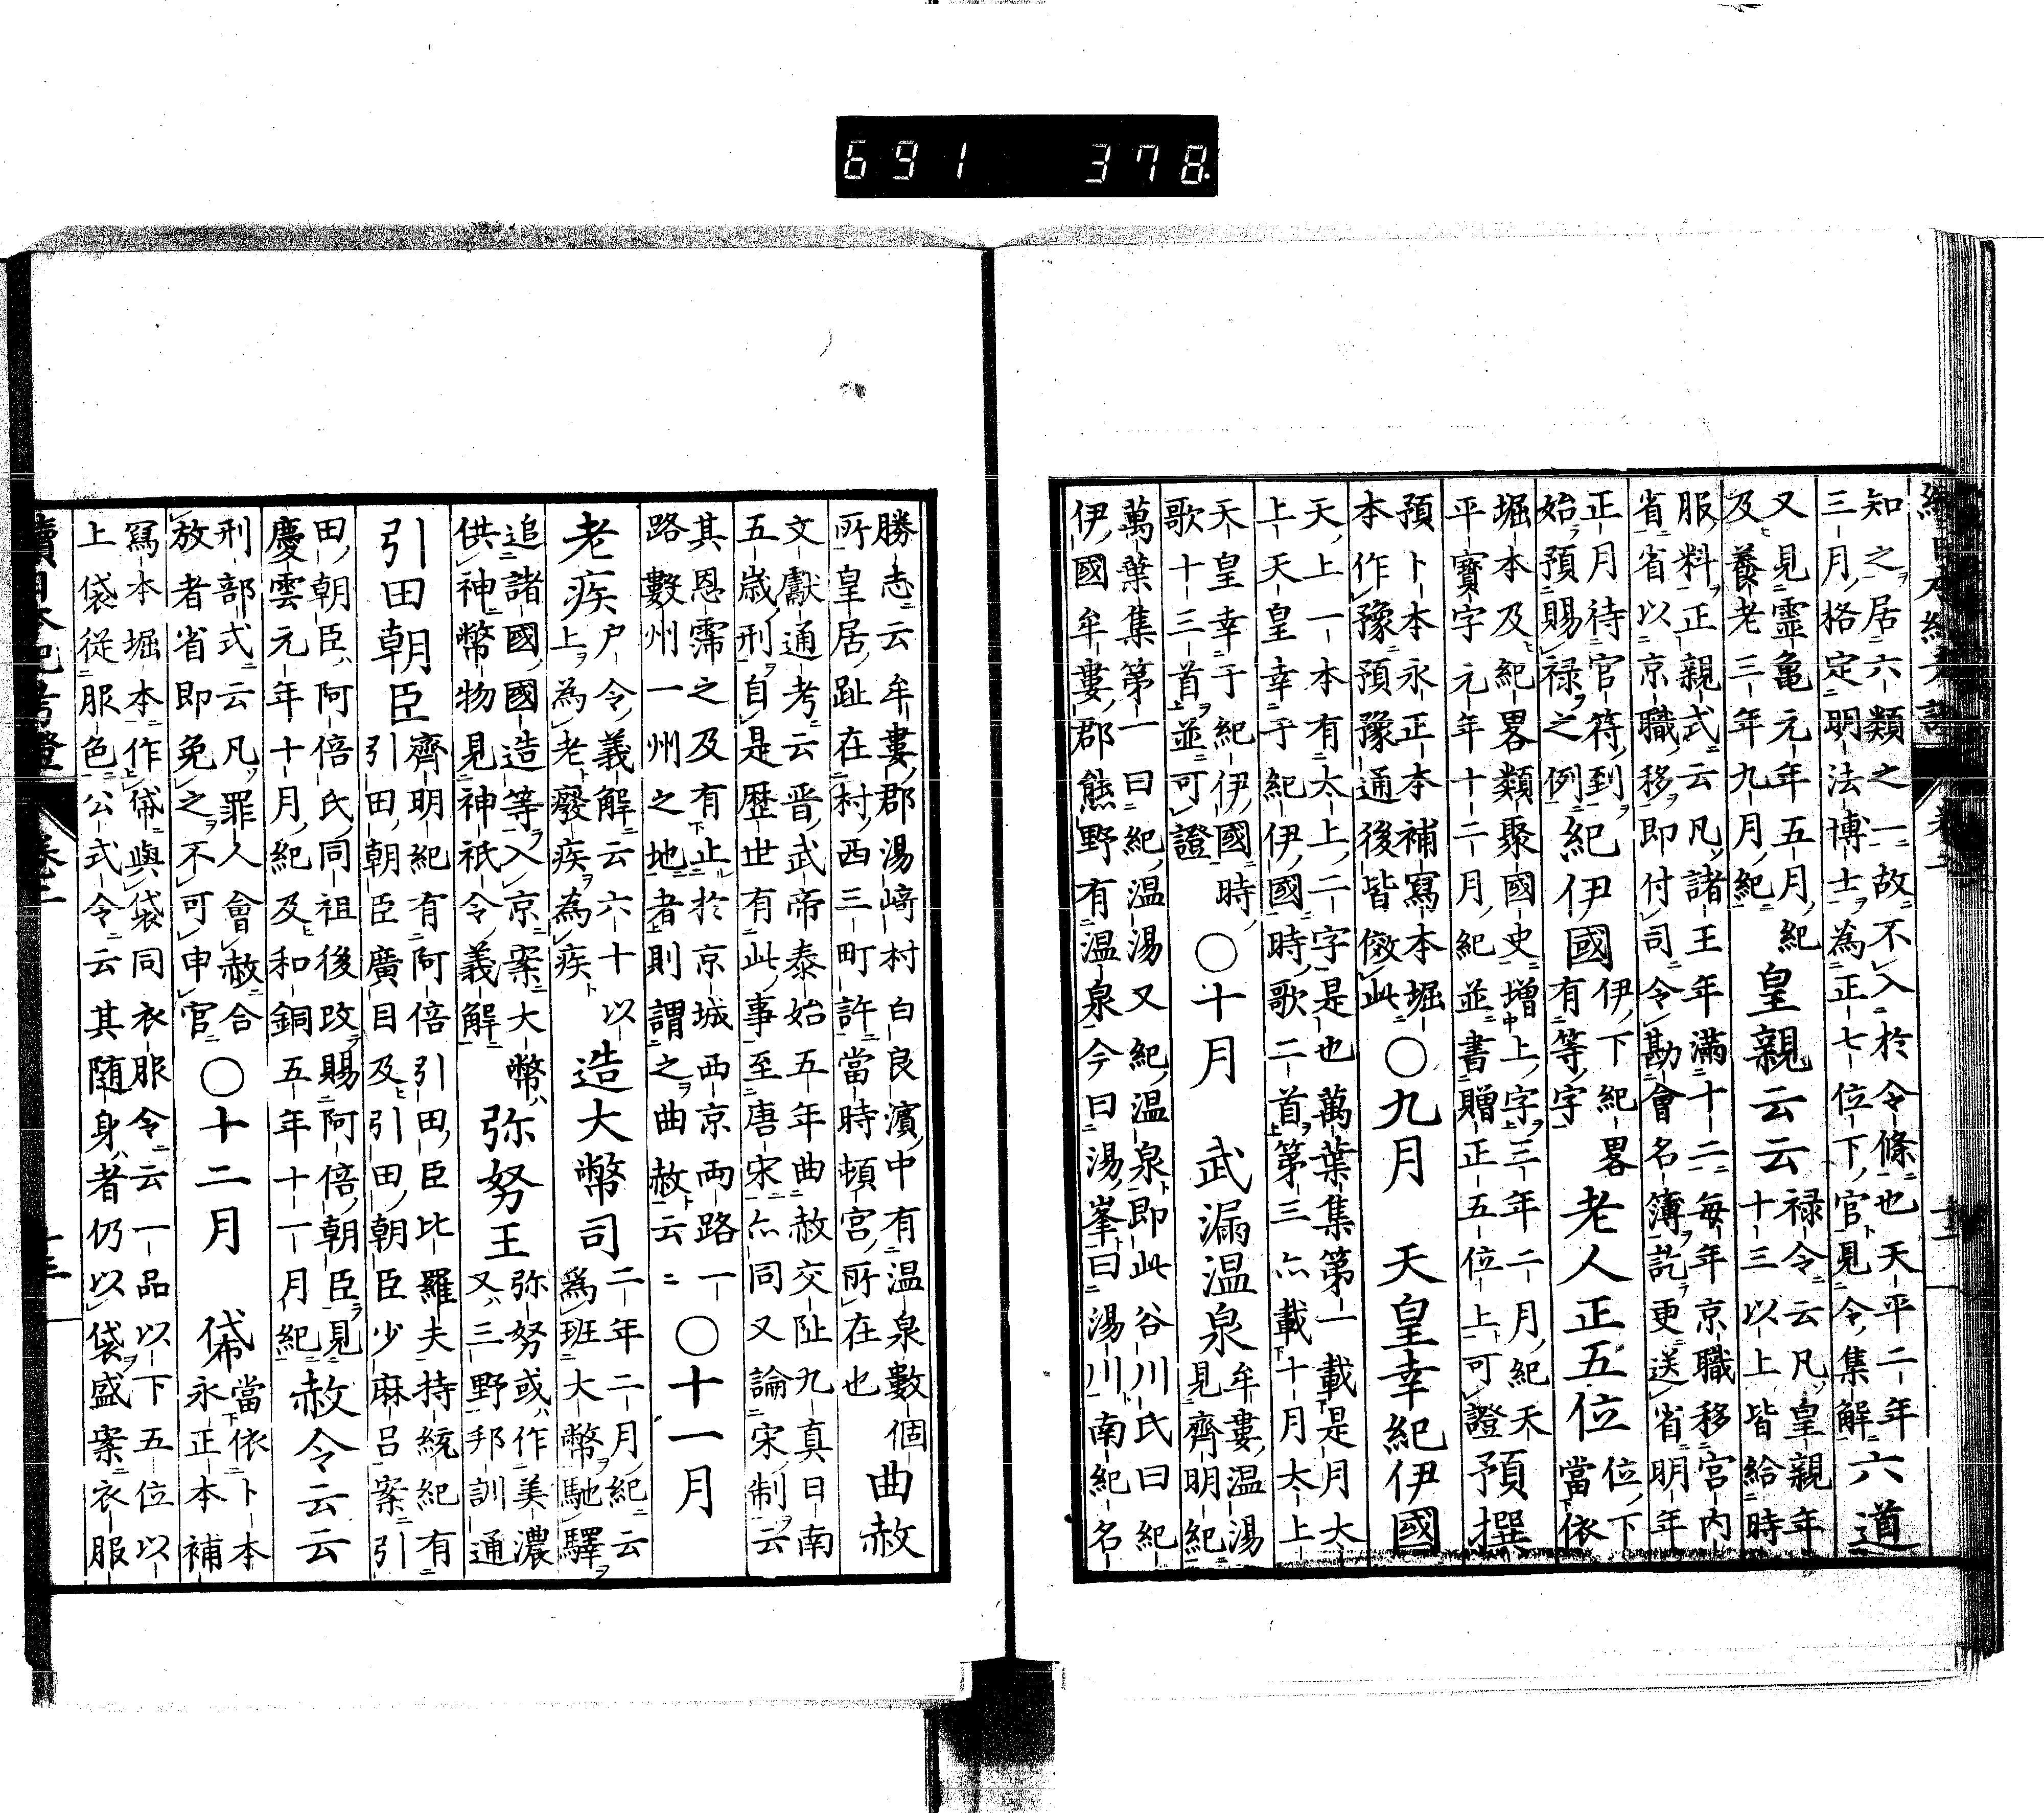 691 378.
知之居六類之一故不入於令條也天平二年
三月格定明法博士為正七位下官見令集解
六道
又見靈亀元年五月紀
及養老三年九月紀
皇親云云
禄令云凡皇親年
十三以上皆給時
服料正親式云凡諸王年滿十二每年京職移宮内
省省以京職移即付司令勘會名簿訖更送省明年
正月待官符到
始預賜禄之例
紀伊國
伊下紀畧
有等字
老人正五位
位下
當依
堀本及紀畧類聚國史増上字三年二月紀天
平寶字元年十二月紀並書贈正五位上可證
預撰
預卜本永正本補寫本堀
本作豫預豫通後皆倣此
○九月 天皇幸紀伊國
天上一本有太上二字是也萬葉集第一載是月太
上天皇幸于紀伊國時歌二首第三亦載十月太上
天皇幸于紀伊國時
歌十三首並可證
○十月 武漏温泉
牟婁温湯
見齊明紀
萬葉集第一曰紀温湯又紀温泉即此谷川氏曰紀
伊國牟婁郡熊野有温泉今曰湯峯曰湯川南紀名
勝志云牟婁郡湯﨑村白良濱中有温泉數個
所皇居趾在村西三町許當時頓宮所在也
曲赦
文獻通考云晋武帝泰始五年曲赦交趾九真日南
五歳刑自是歴世有此事至唐宋亦同又論宋制云
其恩霈之及有止於京城西京兩路一
路數州一州之地者則謂之曲赦云云
○十一月
老疾
户令義解云六十以
上為老癈疾為疾
造大幣司
二年二月紀云
爲班大幣馳驛
追諸國國造等入京案大幣
供神幣物見神祇令義解
弥努王
弥努或作美濃
又三野邦訓通
引田朝臣
齊明紀有阿倍引田臣比羅夫持統紀有
引田朝臣廣目及引田朝臣少麻呂案引
田朝臣阿倍氏同祖後改賜阿倍朝臣見
慶雲元年十月紀及和銅五年十一月紀
赦令云云
刑部式云凡罪人會赦合
放者省即免之不可申官
○十二月 帒
當依卜本
永正本補
寫本堀本作帒與袋同衣服令云一品以下五位以
上袋從服色公式令云其随身者仍以袋盛案衣服
續日本紀考證 卷二 十三